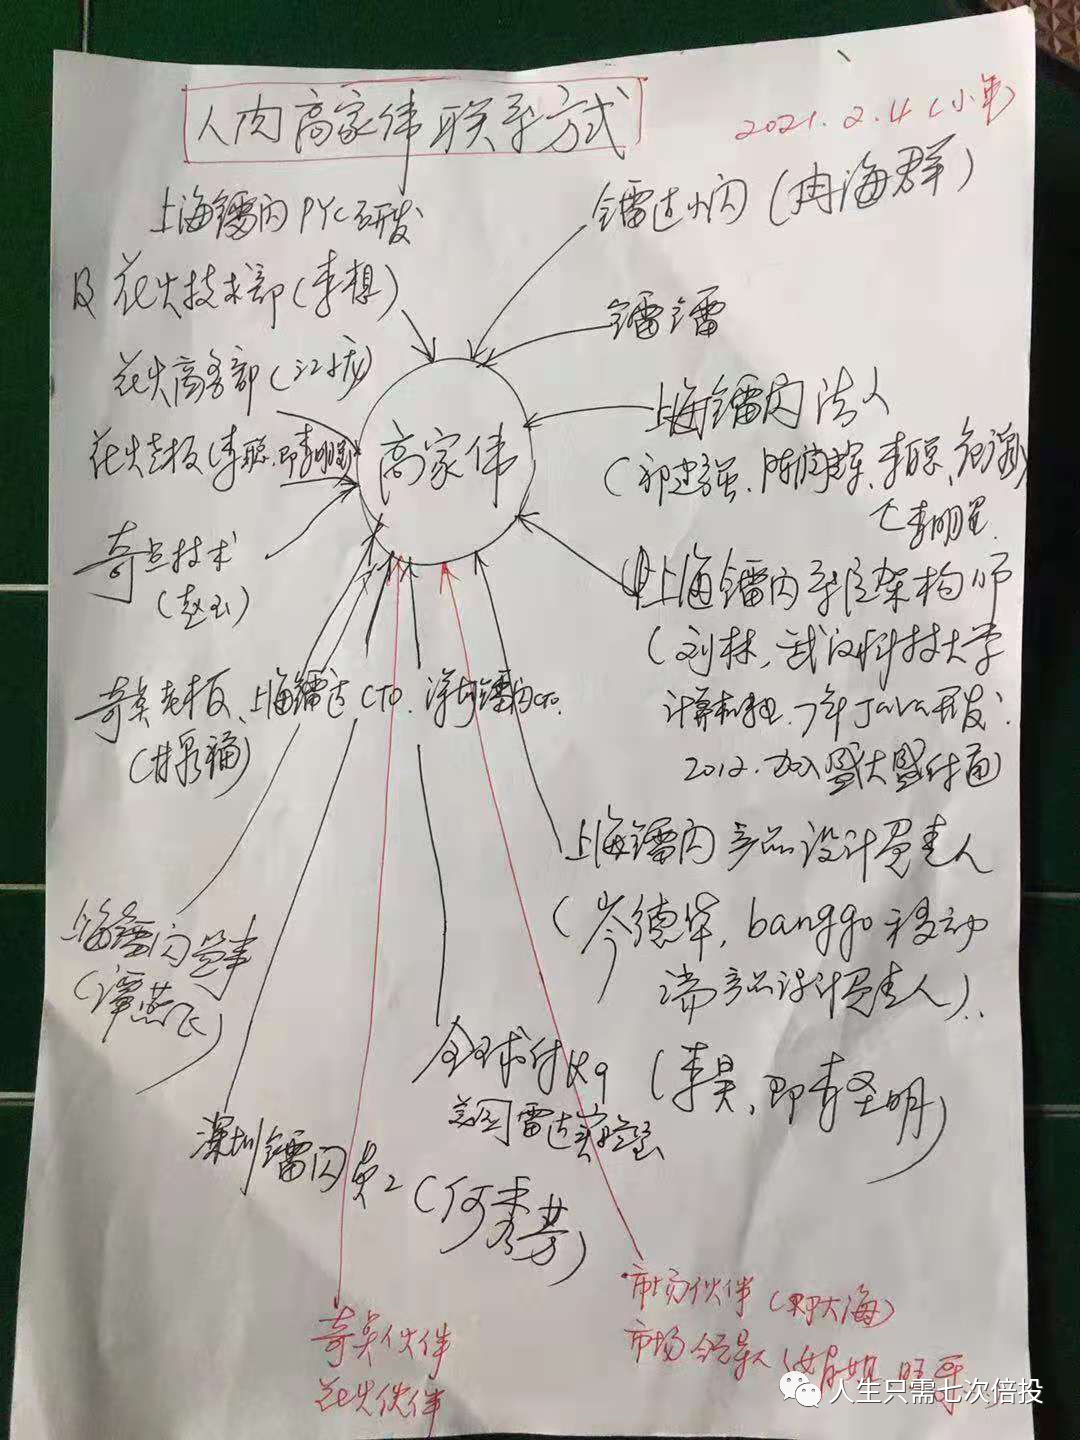 人肉高家伟联系方式
2021.2.4(小年)
上海镭闪PYC研发
及花火技术部(李想)
花火商务部(江城)
花火老板(李聪,即李明星)
奇点技术
(赵云)
奇点老板、上海镭达CTO、深圳镭闪CTO.
(甘泉福)
上海镭闪监事
(谭燕飞)
深圳镭闪员工(何秀芳)
奇点伙伴
花火伙伴
高家伟
镭达小闪(冉海群)
镭镭
上海镭闪法人
(郭建强、陈尚辉、李聪、
李明星
上海镭闪系统架构师
(刘林,武汉科技大学
计算机专业,7年Java开发.
2012.加入盛大盛付通)
上海镭闪产品设计负责人
(岑德华,banggo移动
端产品设计负责人)..
全球付kq(李昊,即李圣明)
美国雷达实验室
市场伙伴(郑大海)
市场领导人
人生只需七次倍投